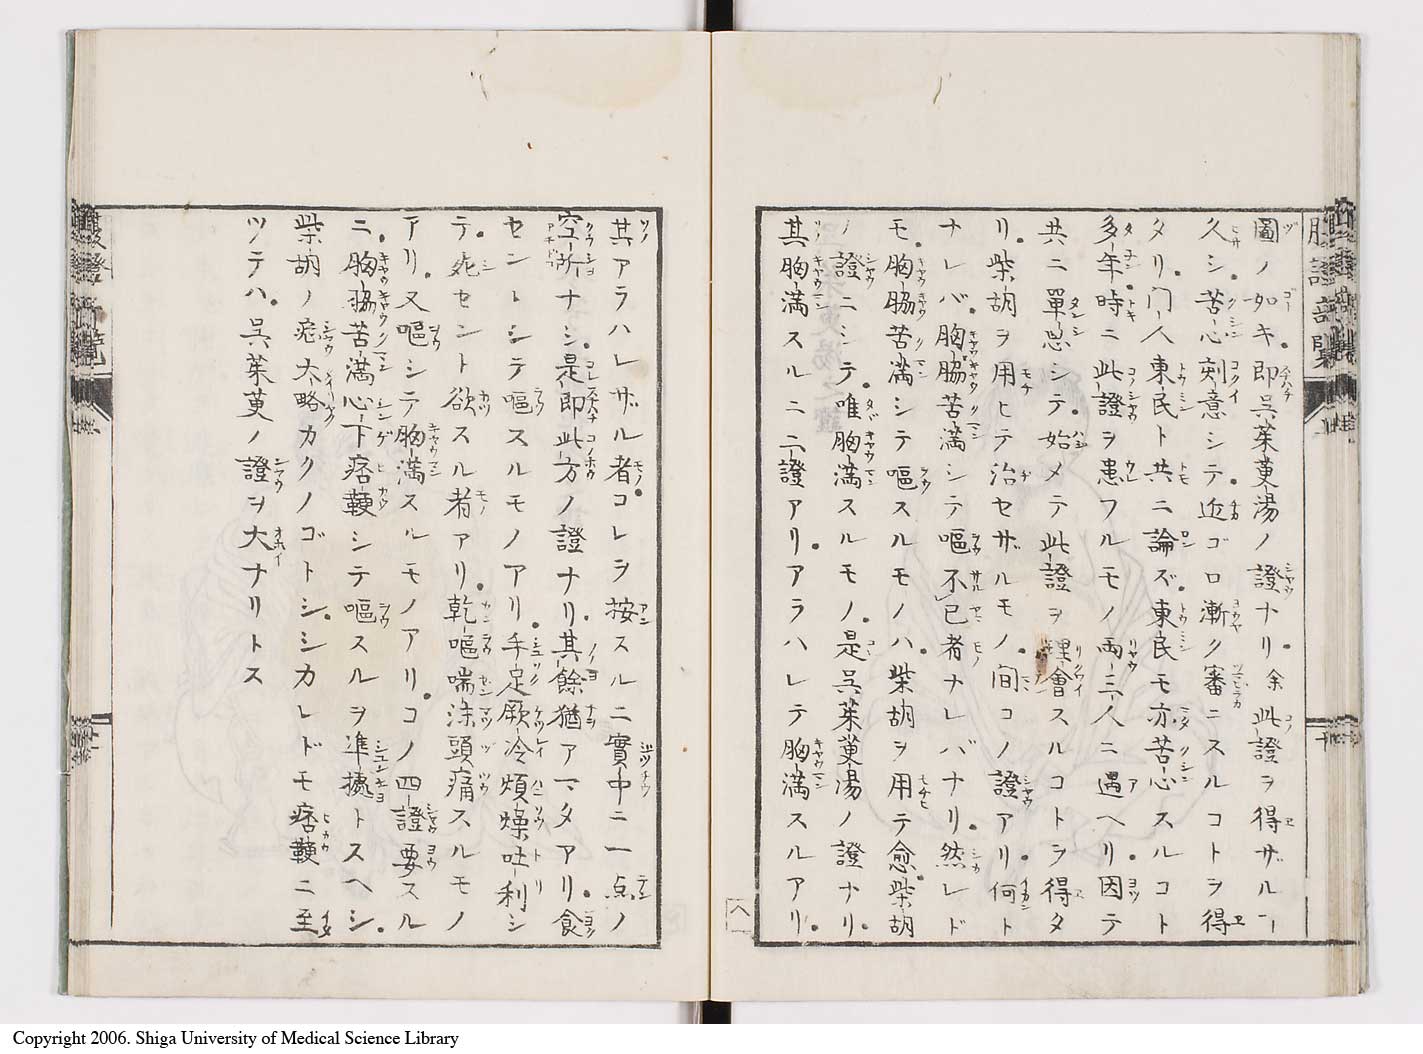 圖ノ如キ即呉茱萸湯ノ證ナリ余此證ヲ得ザルニ
久シ苦心刻意シテ近ゴロ漸ク審ニスルコトヲ得
タリ門人東民ト共ニ論ズ東民モ亦苦心スルコト
多年時ニ此證ヲ患フルモノ兩三人ニ遇ヘリ因テ
共ニ單思シテ始メテ此證ヲ理會スルコトヲ得タ
リ柴胡ヲ用ヒテ治セザルモノ間コノ證アリ何ト
ナレバ胸脇苦滿シテ嘔不已者ナレバナリ然レド
モ胸脇苦滿シテ嘔スルモノハ柴胡ヲ用テ愈柴胡
ノ證ニシテ唯胸滿スルモノ是呉茱萸湯ノ證ナリ
其胸滿スルニ二證アリアラハレテ胸滿スルアリ
其アラハレザル者コレヲ按スルニ實中ニ一点ノ
空所ナシ是即此方ノ證ナリ其餘猶アマタアリ食
セントシテ嘔スルモノアリ手足厥冷煩燥吐利シ
テ死セント欲スル者アリ乾嘔喘涎頭痛スルモノ
アリ又嘔シテ胸滿スルモノアリコノ四證要スル
ニ胸脇苦滿心下痞鞕シテ嘔スルヲ準據トスヘシ
柴胡ノ症大略カクノゴトシシカレドモ痞鞕ニ至
ツテハ呉茱萸ノ證ヲ大ナリトス
Copyright 2006. Shiga University of Medical Science Library